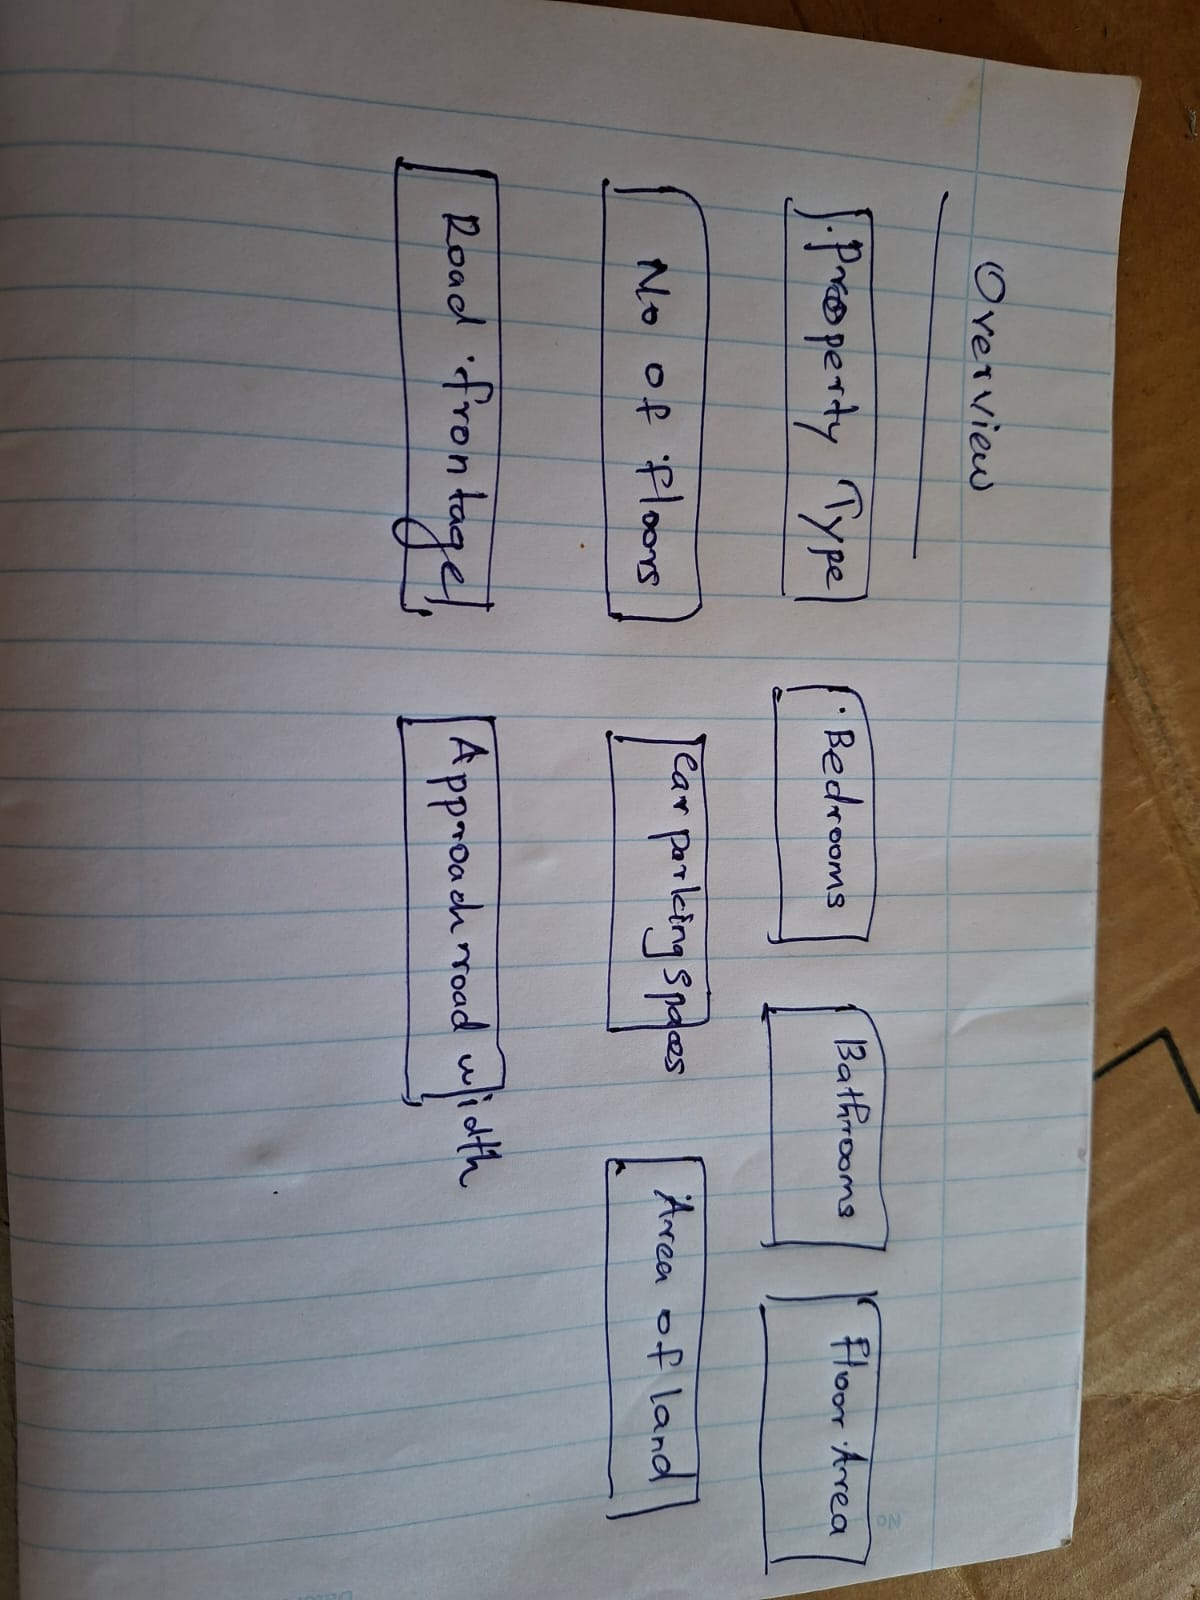 Overview
Property Type Bedrooms Bathrooms Floor Area
No of floors Car parking spaces Area of land
Road frontage Approach road width
No